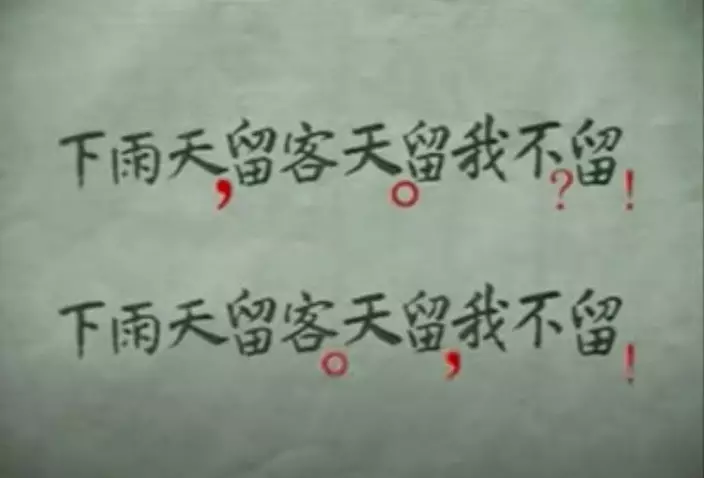 下雨天,留客天。留我不?留!
下雨天留客。天留,我不留!